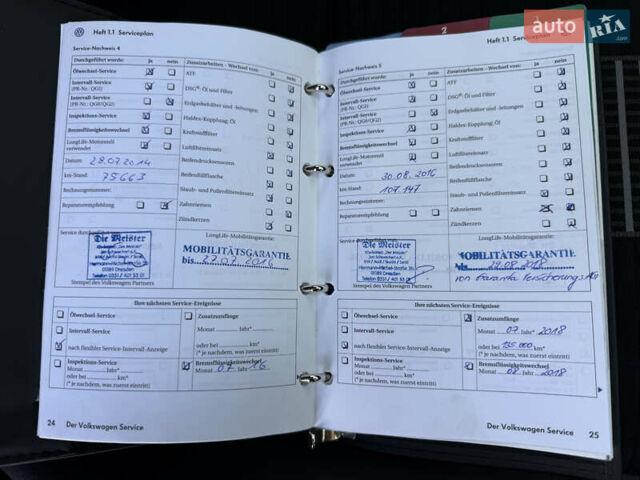 Heft 1.1 Serviceplan
Service-Nachweis 4
Durchgeführt wurde: ja nein
Ölwechsel-Service
Intervall-Service
(PR-Nr.: QG1)
Intervall-Service
(PR-Nr.: QG0/QG2)
Inspektions-Service
Bremsflüssigkeitswechsel
LongLife-Motorenöl
verwendet
Datum: 28.07.2014
km-Stand: 75663
Rechnungsnummer:
Reparaturempfehlung
Zusatzarbeiten - Wechsel von: ja nein
ATF
DSG®-Öl und Filter
Erdgasbehälter und -leitungen
Haldex-Kupplung: Öl
Kraftstofffilter
Luftfiltereinsatz
Reifendrucksensoren
Reifenfüllflasche
Staub- und Pollenfiltereinsatz
Zahnriemen
Zündkerzen
Service durchgeführt
Die Meister
01589 Dresden
Stempel des Volkswagen Partners
LongLife-Mobilitätsgarantie:
MOBILITÄTSGARANTIE
bis 27.07.2016
Ihre nächsten Service-Ereignisse
Ölwechsel-Service
Intervall-Service
nach flexibler Service-Intervall-Anzeige
Inspektions-Service
oder bei km*
(* je nachdem, was zuerst eintritt)
Zusatzumfänge
Monat Jahr*
oder bei km*
(* je nachdem, was zuerst eintritt)
Bremsflüssigkeitswechsel
Monat 07 Jahr 16
24 Der Volkswagen Service
2
auto RIA
.com
Heft 1.1 Serviceplan
Service-Nachweis 5
Durchgeführt wurde: ja nein
Ölwechsel-Service
Intervall-Service
(PR-Nr.: QG1)
Intervall-Service
(PR-Nr.: QG0/QG2)
Inspektions-Service
Bremsflüssigkeitswechsel
LongLife-Motorenöl
verwendet
Datum: 30.08.2016
km-Stand: 107.147
Rechnungsnummer:
Reparaturempfehlung
Zusatzarbeiten - Wechsel von: ja nein
ATF
DSG®-Öl und Filter
Erdgasbehälter und -leitungen
Haldex-Kupplung: Öl
Kraftstofffilter
Luftfiltereinsatz
Reifendrucksensoren
Reifenfüllflasche
Staub- und Pollenfiltereinsatz
Zahnriemen
Zündkerzen
Service durchgeführt
Die Meister
Stempel des Volkswagen Partners
LongLife-Mobilitätsgarantie:
MOBILITÄTSGARANTIE
bis 29.08.2018
von Garantie Versicherung
Ihre nächsten Service-Ereignisse
Ölwechsel-Service
Intervall-Service
nach flexibler Service-Intervall-Anzeige
Inspektions-Service
oder bei km*
(* je nachdem, was zuerst eintritt)
Zusatzumfänge
Monat 07 Jahr* 2018
oder bei 135 000 km*
(* je nachdem, was zuerst eintritt)
Bremsflüssigkeitswechsel
Monat 08 Jahr 2018
Der Volkswagen Service 25